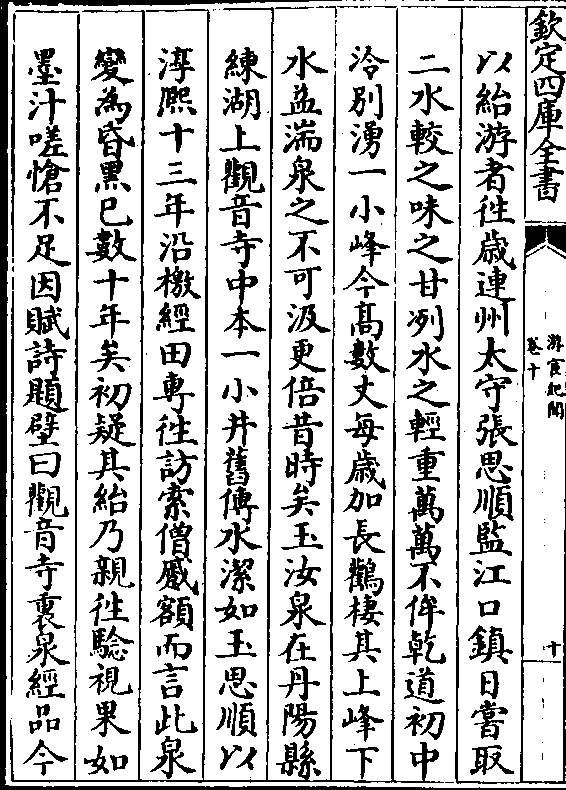 欽定四庫全書
游宦紀聞
卷十
十
以紿游者徃歳連州太守張思順監江口鎮日嘗取
二水較之味之甘冽水之輕重萬萬不侔乾道初中
泠别湧一小峰今髙數丈每歳加長鸛棲其上峰下
水益湍泉之不可汲更倍昔時矣玉汝泉在丹陽縣
練湖上觀音寺中本一小井舊傳水潔如玉思順以
淳熙十三年沿檄經田専徃訪索僧蹙額而言此泉
變為昏黒已數十年矣初疑其紿乃親徃驗視果如
墨汁嗟愴不足因賦詩題壁曰觀音寺裏泉經品今